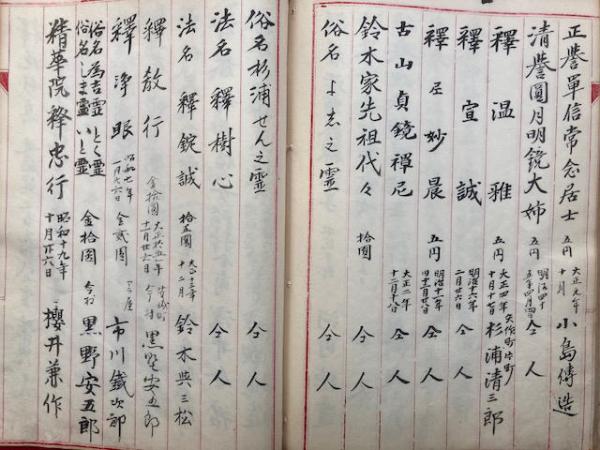 正誉單信常念居士 五円 大正元年十月 小島傳造
清誉圓月明鏡大姉 五円 明治四十 仝人
釋温雅 五円 大正四年十月十七日 矢作町 杉浦清三郎
釋宣誠 明治十六年二月廿六日 仝人
釋尼妙晨 五円 明治十一年 仝人
古山貞鏡禅尼 大正二年十二月十八日 仝人
鈴木家先祖代々 拾圓 仝人
俗名よ志之霊 仝人
俗名杉浦せん之霊 仝人
法名釋樹心 仝人
法名釋錠誠 拾五圓 大正十三年十二月 鈴木與三松
釋教行 金拾圓 黒埜安五郎
釋淨眼 昭和七年一月六日 金貳圓 市川鐵次郎
俗名為吉霊 いとく霊 俗名しま霊 いと霊 金拾圓 黒野安五郎
精華院釋忠行 昭和十九年十月廿六日 櫻井兼作